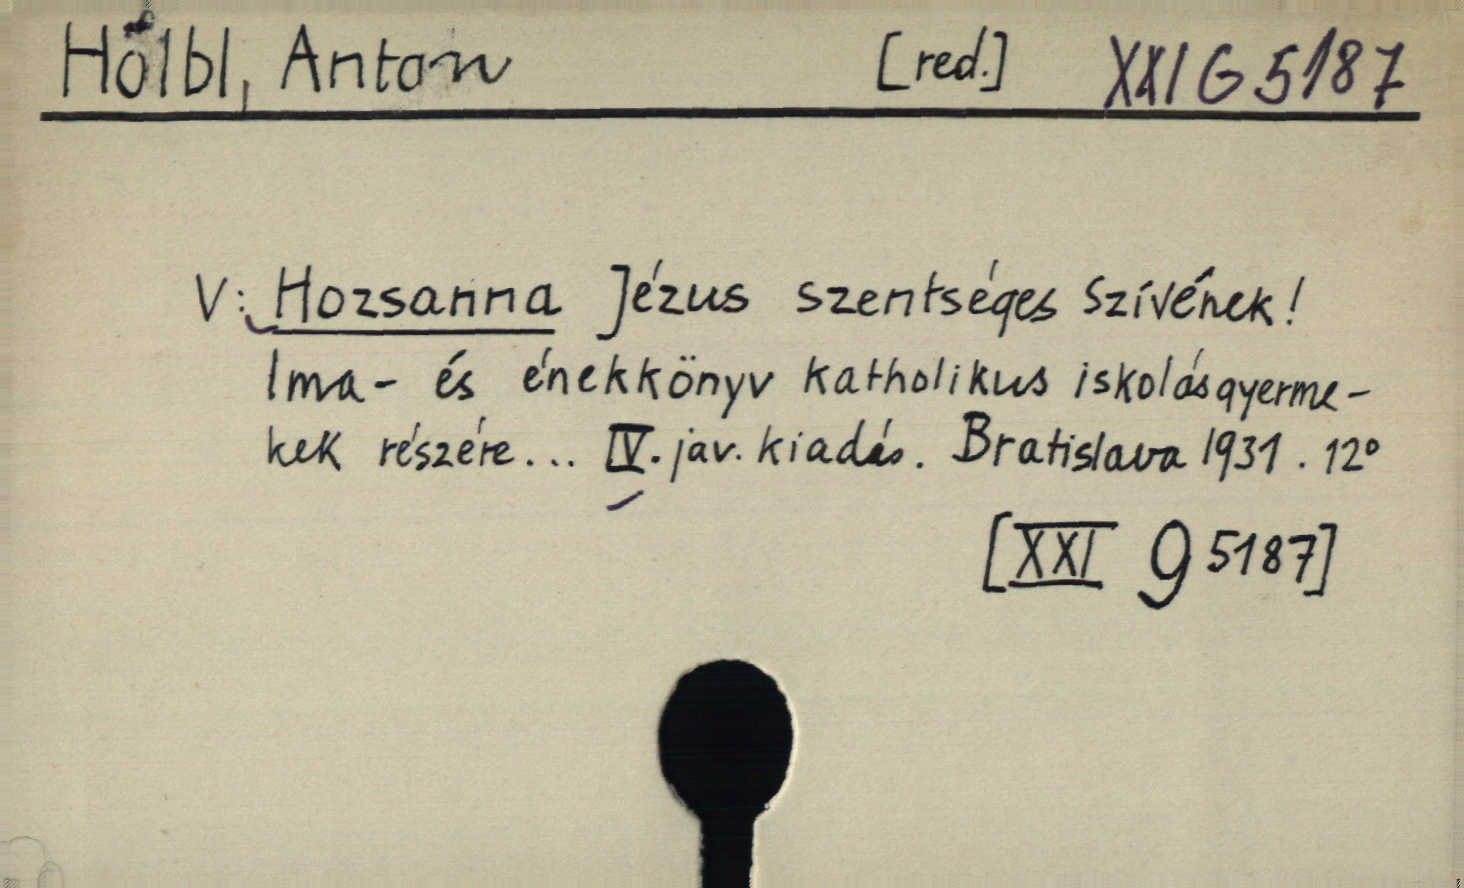 Hölbl, Anton [red.] XXI G 5187
V: Hozsanna Jézus szentséges Szívének!
Ima- és énekkönyv katholikus iskolásgyerme-
kek részére... IV. jav. kiadás. Bratislava 1931. 12°
[XXI g 5187]